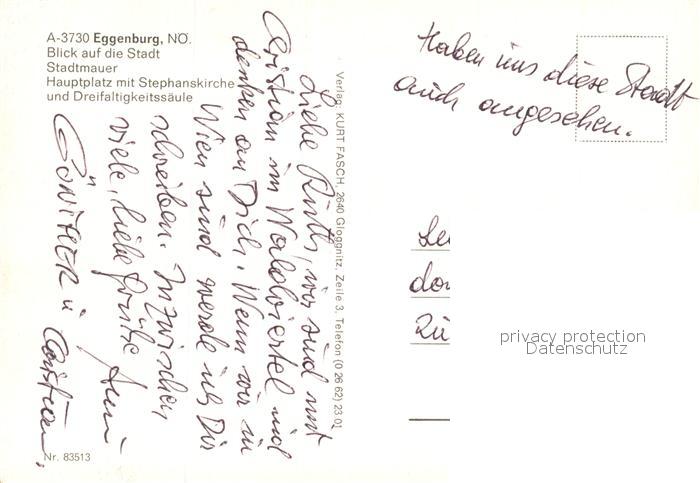 A-3730 Eggenburg, NÖ.
Blick auf die Stadt
Stadtmauer
Hauptplatz mit Stephanskirche
und Dreifaltigkeitssäule
Haben uns diese Stadt
auch angesehen.
Liebe Ruth, wir sind mit
Christian im Waldviertel und
denken an Dich. Wenn wir in
Wien sind werde ich Dir
schreiben. Inzwischen
viele, liebe Grüße Anni
GÜNTHER u Christian.
Verlag: KURT FASCH, 2640 Gloggnitz, Zeile 3, Telefon (0 26 62) 23 01
Zü
privacy protection
Datenschutz
Nr. 83513